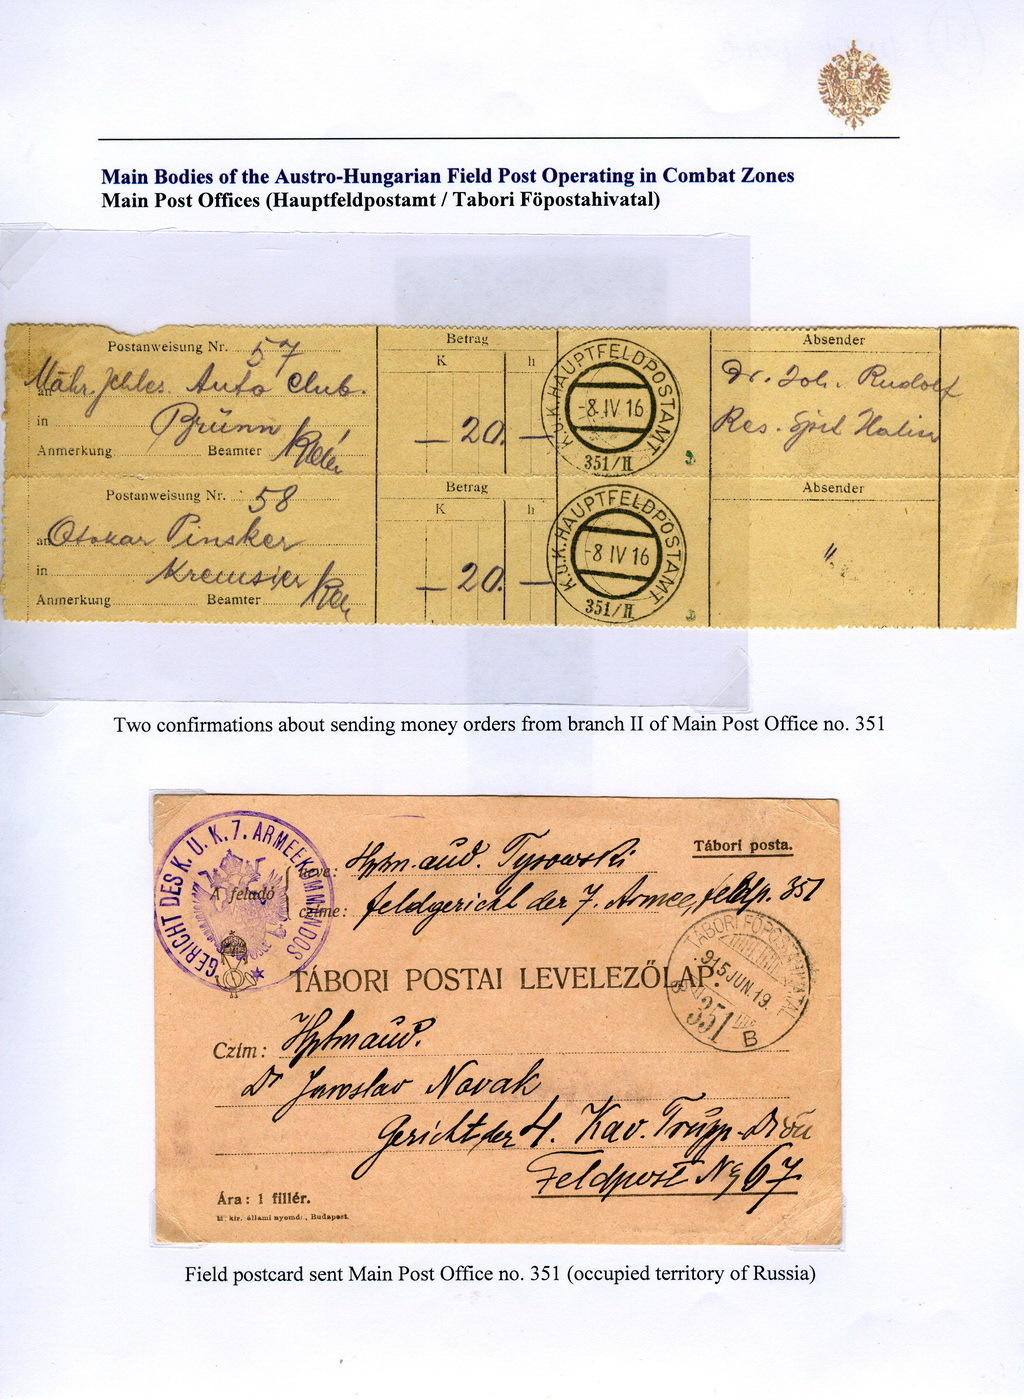 Main Bodies of the Austro-Hungarian Field Post Operating in Combat Zones
Main Post Offices (Hauptfeldpostamt / Tabori Föpostahivatal)
Postanweisung Nr. 57
Betrag
Absender
K h
an Mähr. Schles. Auto Club.
in Brünn
Anmerkung Beamter
— 20. —
K.U.K. HAUPTFELDPOSTAMT
-8 IV 16
351/II
Dr. Joh. Rudolf
Res.
Postanweisung Nr. 58
Betrag
Absender
K h
an Otokar Pinsker
in Kremsier
Anmerkung Beamter
— 20. —
K.U.K. HAUPTFELDPOSTAMT
-8 IV 16
351/II
"
Two confirmations about sending money orders from branch II of Main Post Office no. 351
GERICHT DES K.U.K. 7. ARMEEKOMMANDOS
Tábori posta.
A feladó
neve: Hptm. aud. Tysowski
czíme: Feldgericht der 7. Armee, Feldp. 351
TÁBORI FŐPOSTAHIVATAL
915 JUN. 19.
351
B
TÁBORI POSTAI LEVELEZŐLAP.
Czím: Hptmaud.
Dr Jaroslav Novak
Gericht der 4. Kav. Trupp. Divis
Feldpost No 67
Ára: 1 fillér.
M. kir. állami nyomd., Budapest.
Field postcard sent Main Post Office no. 351 (occupied territory of Russia)